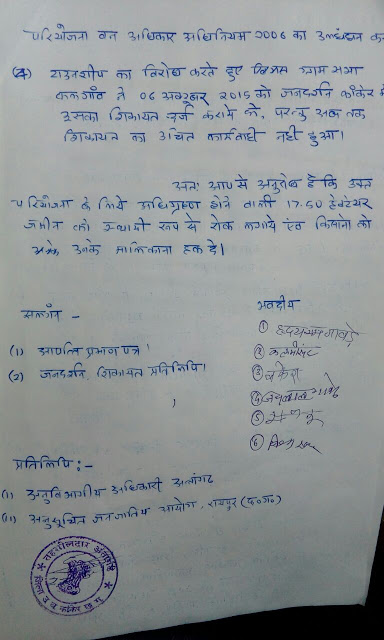 परियोजना वन अधिकार अधिनियम 2006 का उल्लंघन कर
(4) टाउनशीप का विरोध करते हुए ग्राम सभा
कलगाँव ने 06 अक्टूबर 2015 को जनदर्शन कांकेर में
उसका शिकायत दर्ज कराये थे, परन्तु अब तक
शिकायत का उचित कार्यवाही नही हुआ।
अतः आपसे अनुरोध है कि उक्त
परियोजना के लिये अधिग्रहण होने वाली 17.50 हेक्टेयर
जमीन को स्थायी रूप से रोक लगाये एंव किसानो को
उनके मालिकाना हक दे।
संलग्न -
भवदीय
(1) आपत्ति प्रमाण पत्र।
(2) जनदर्शन, शिकायत प्रतिलिपि।
①
②
③
④
⑤
⑥
प्रतिलिपि :-
(i) अनुविभागीय अधिकारी अंतागढ़
(ii) अनुसूचित जनजातिय आयोग, रायपुर (छ०ग०)
तहसीलदार अंतागढ़
जिला उ.ब. कांकेर छ.ग.